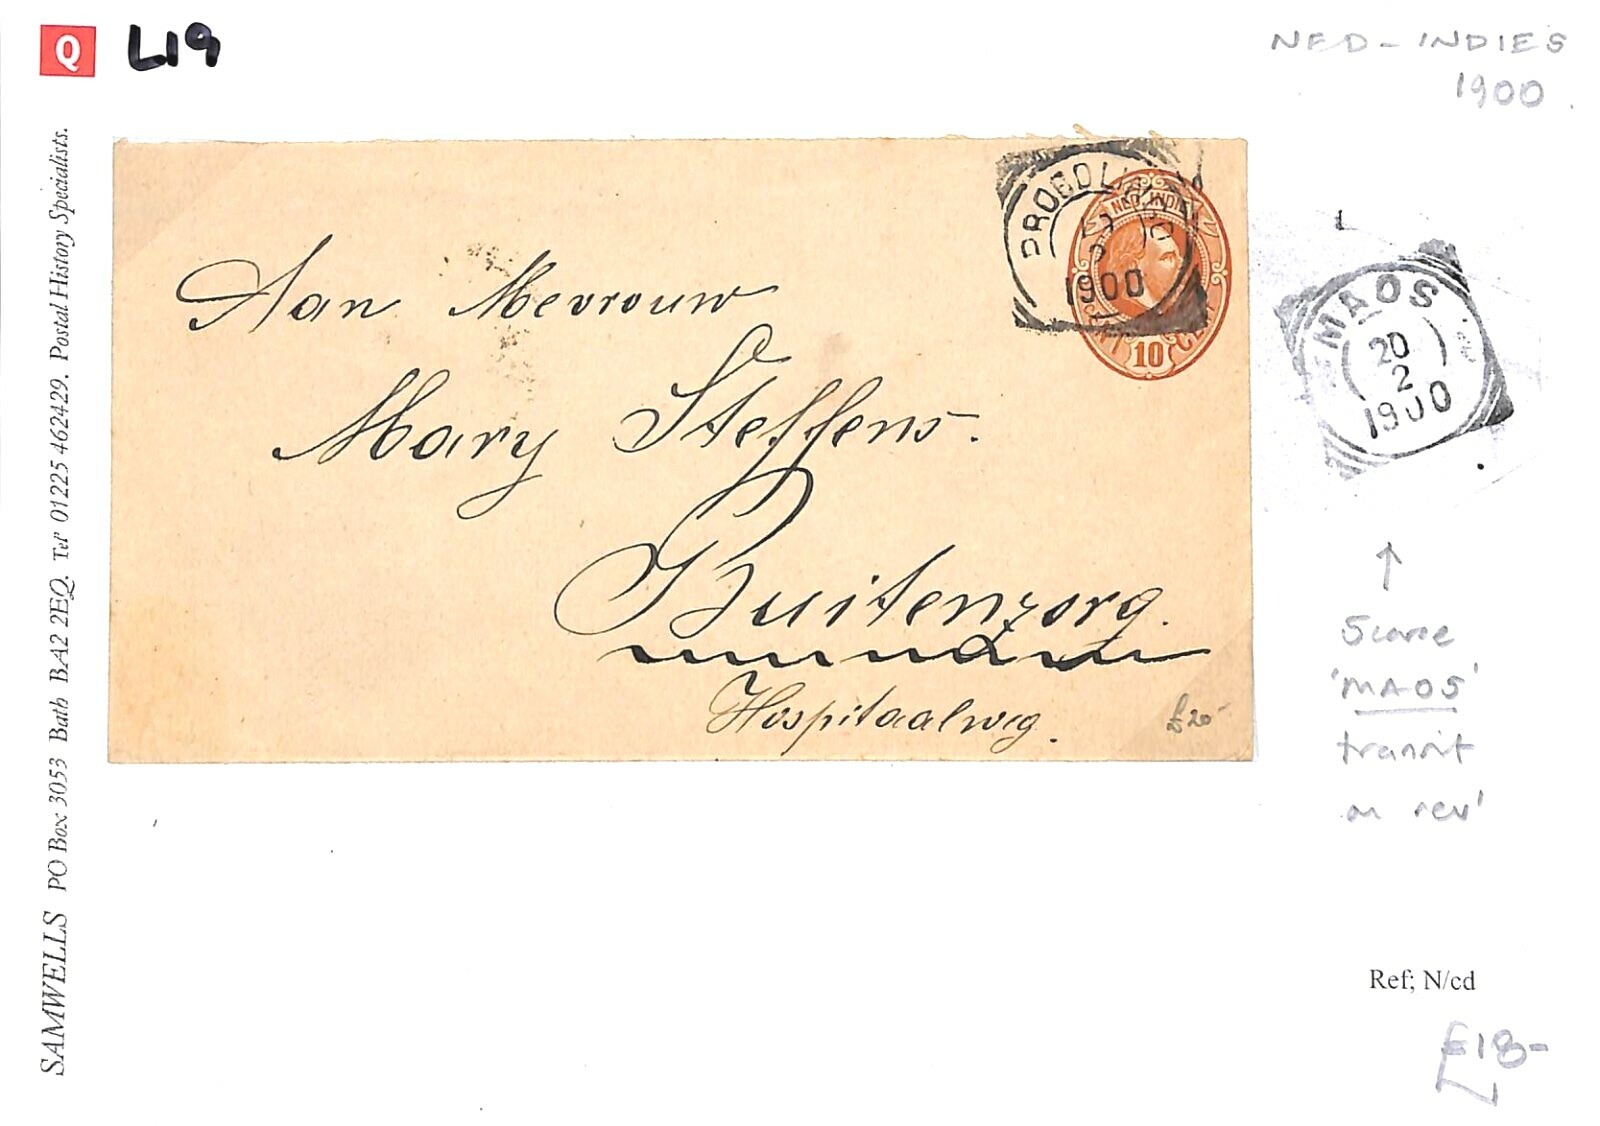 Q L19
NED-INDIES
1900
SAMWELLS PO Box 3053 Bath BA2 2EQ. Tel 01225 462429. Postal History Specialists.
NED. INDIE
1900
10 CENT
Aan Mevrouw
Mary Steffens.
Buitenzorg.
Hospitaalweg.
£20-
MAOS
20
2
1900
↑
Scarce
'MAOS'
transit
on rev'
Ref; N/cd
£18-